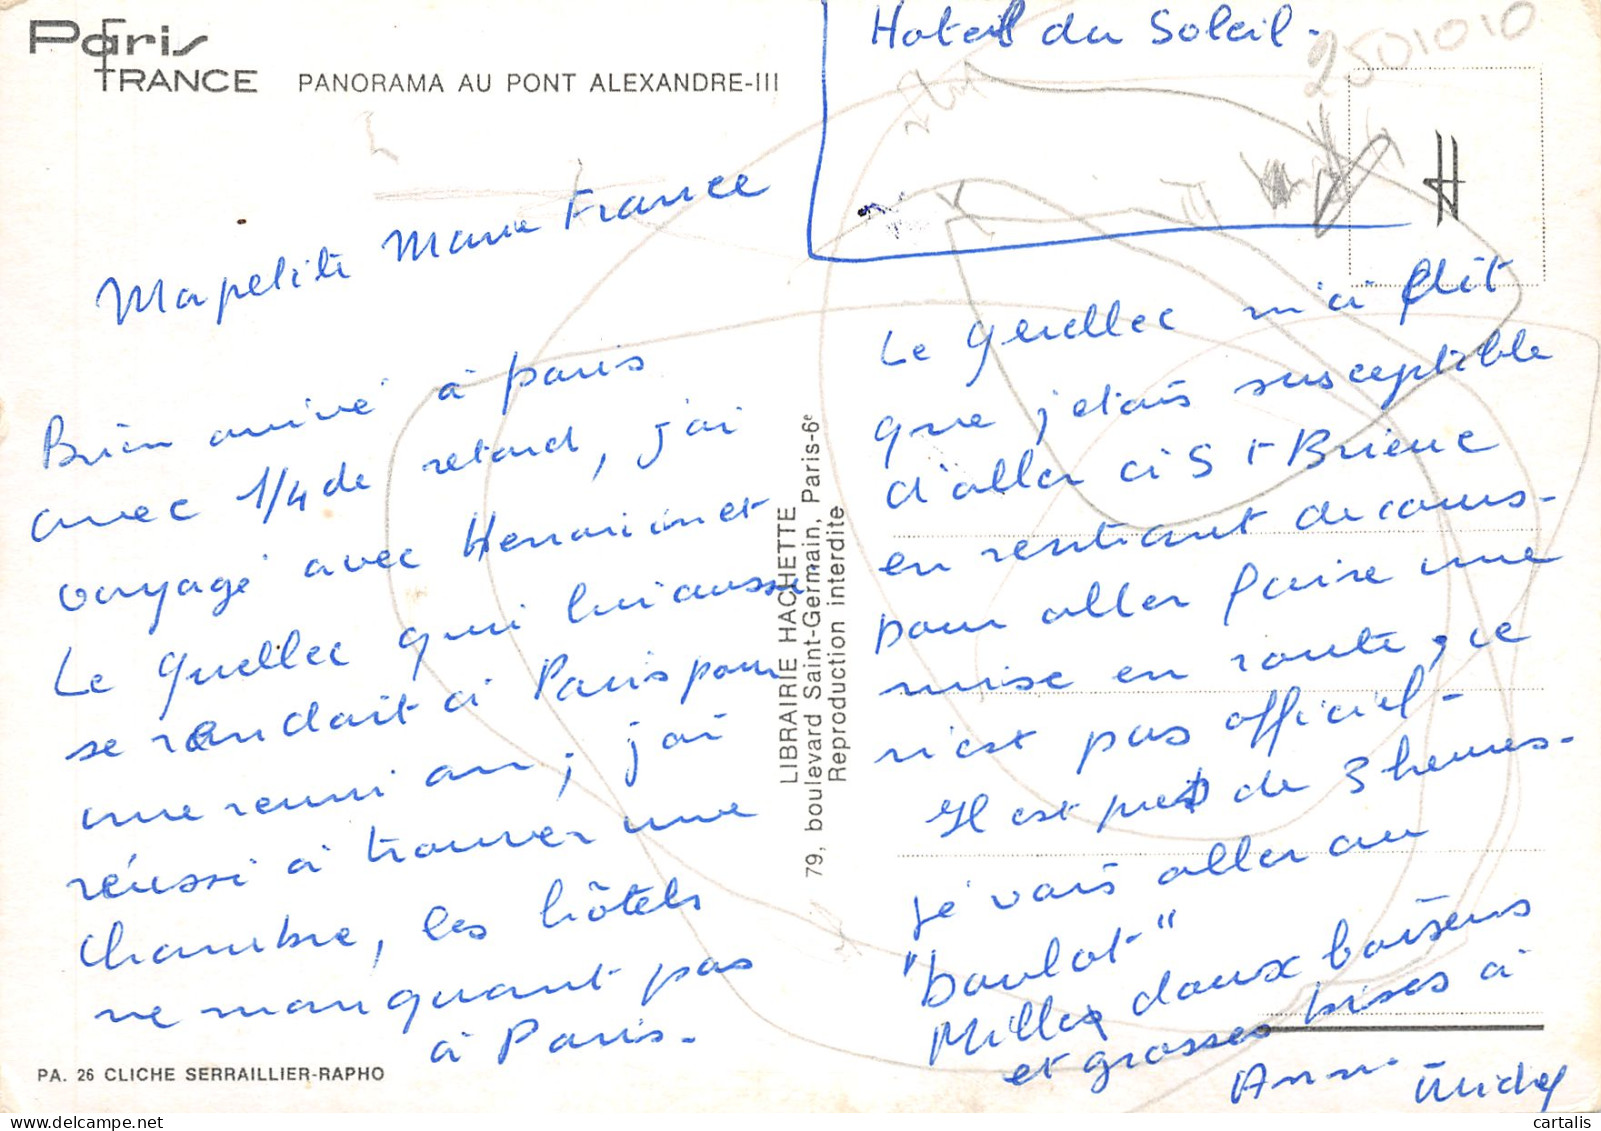 Paris
FRANCE
PANORAMA AU PONT ALEXANDRE-III
Hotel du Soleil -
2501010
H
Ma petite Marie France
Bien arrivé à Paris
avec 1/4 de retard, j'ai
voyagé avec et
Le Quellec qui lui aussi
se rendait à Paris pour
une reunion ; j'ai
réussi à trouver une
chambre, les hôtels
ne manquant pas
à Paris.-
PA. 26 CLICHE SERRAILLIER-RAPHO
LIBRAIRIE HACHETTE
79, boulevard Saint-Germain, Paris-6e
Reproduction interdite
Le Quellec m'a dit
que j'étais susceptible
d'aller à St Brieuc
en rentrant de cours -
pour aller faire une
mise en route, ce
n'est pas officiel -
Il est près de 3 heures -
je vais aller au
"boulot"
Milles doux baisers
et grosses bises à
Anne
cartalis